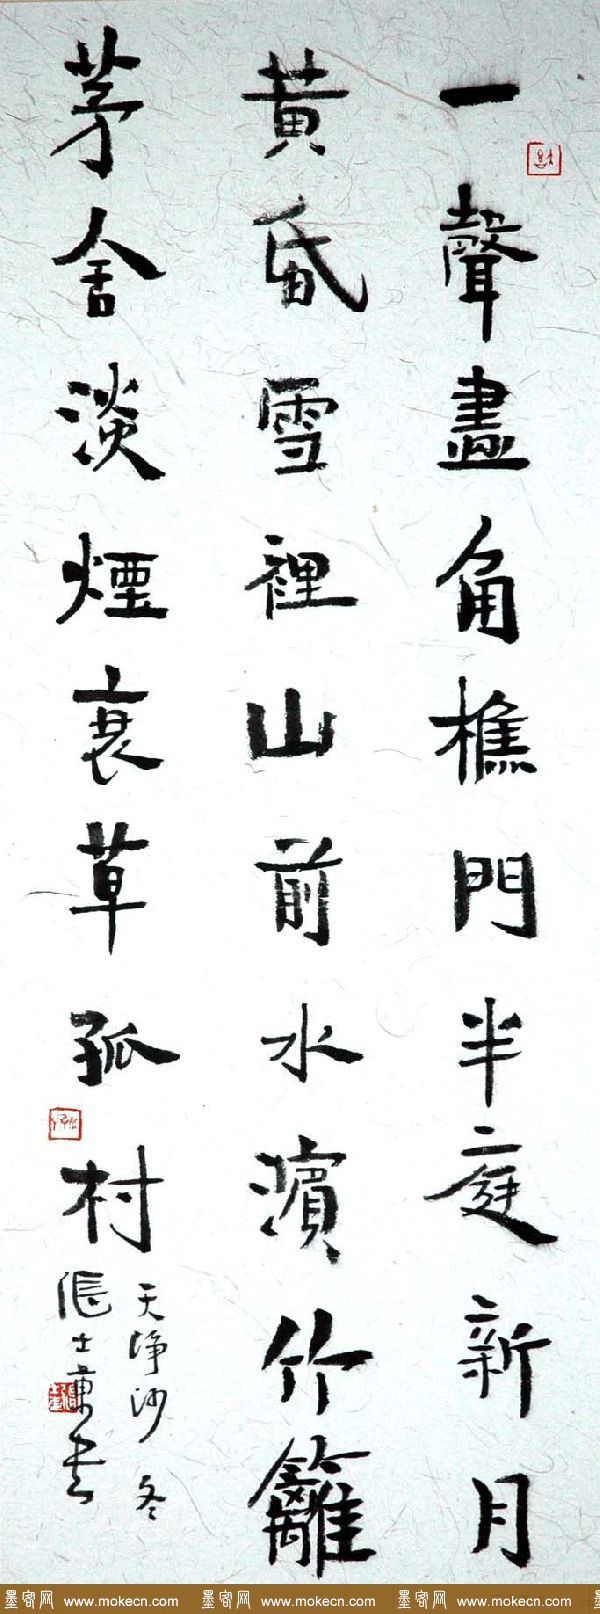 一聲盡角樵門半庭新月
黃昏雪裡山前水濱竹籬
茅舍淡煙衰草孤村
天净沙 冬
張士東书
墨客网 www.mokecn.com 墨客网 www.mokecn.com 墨客网 www.mokecn.com